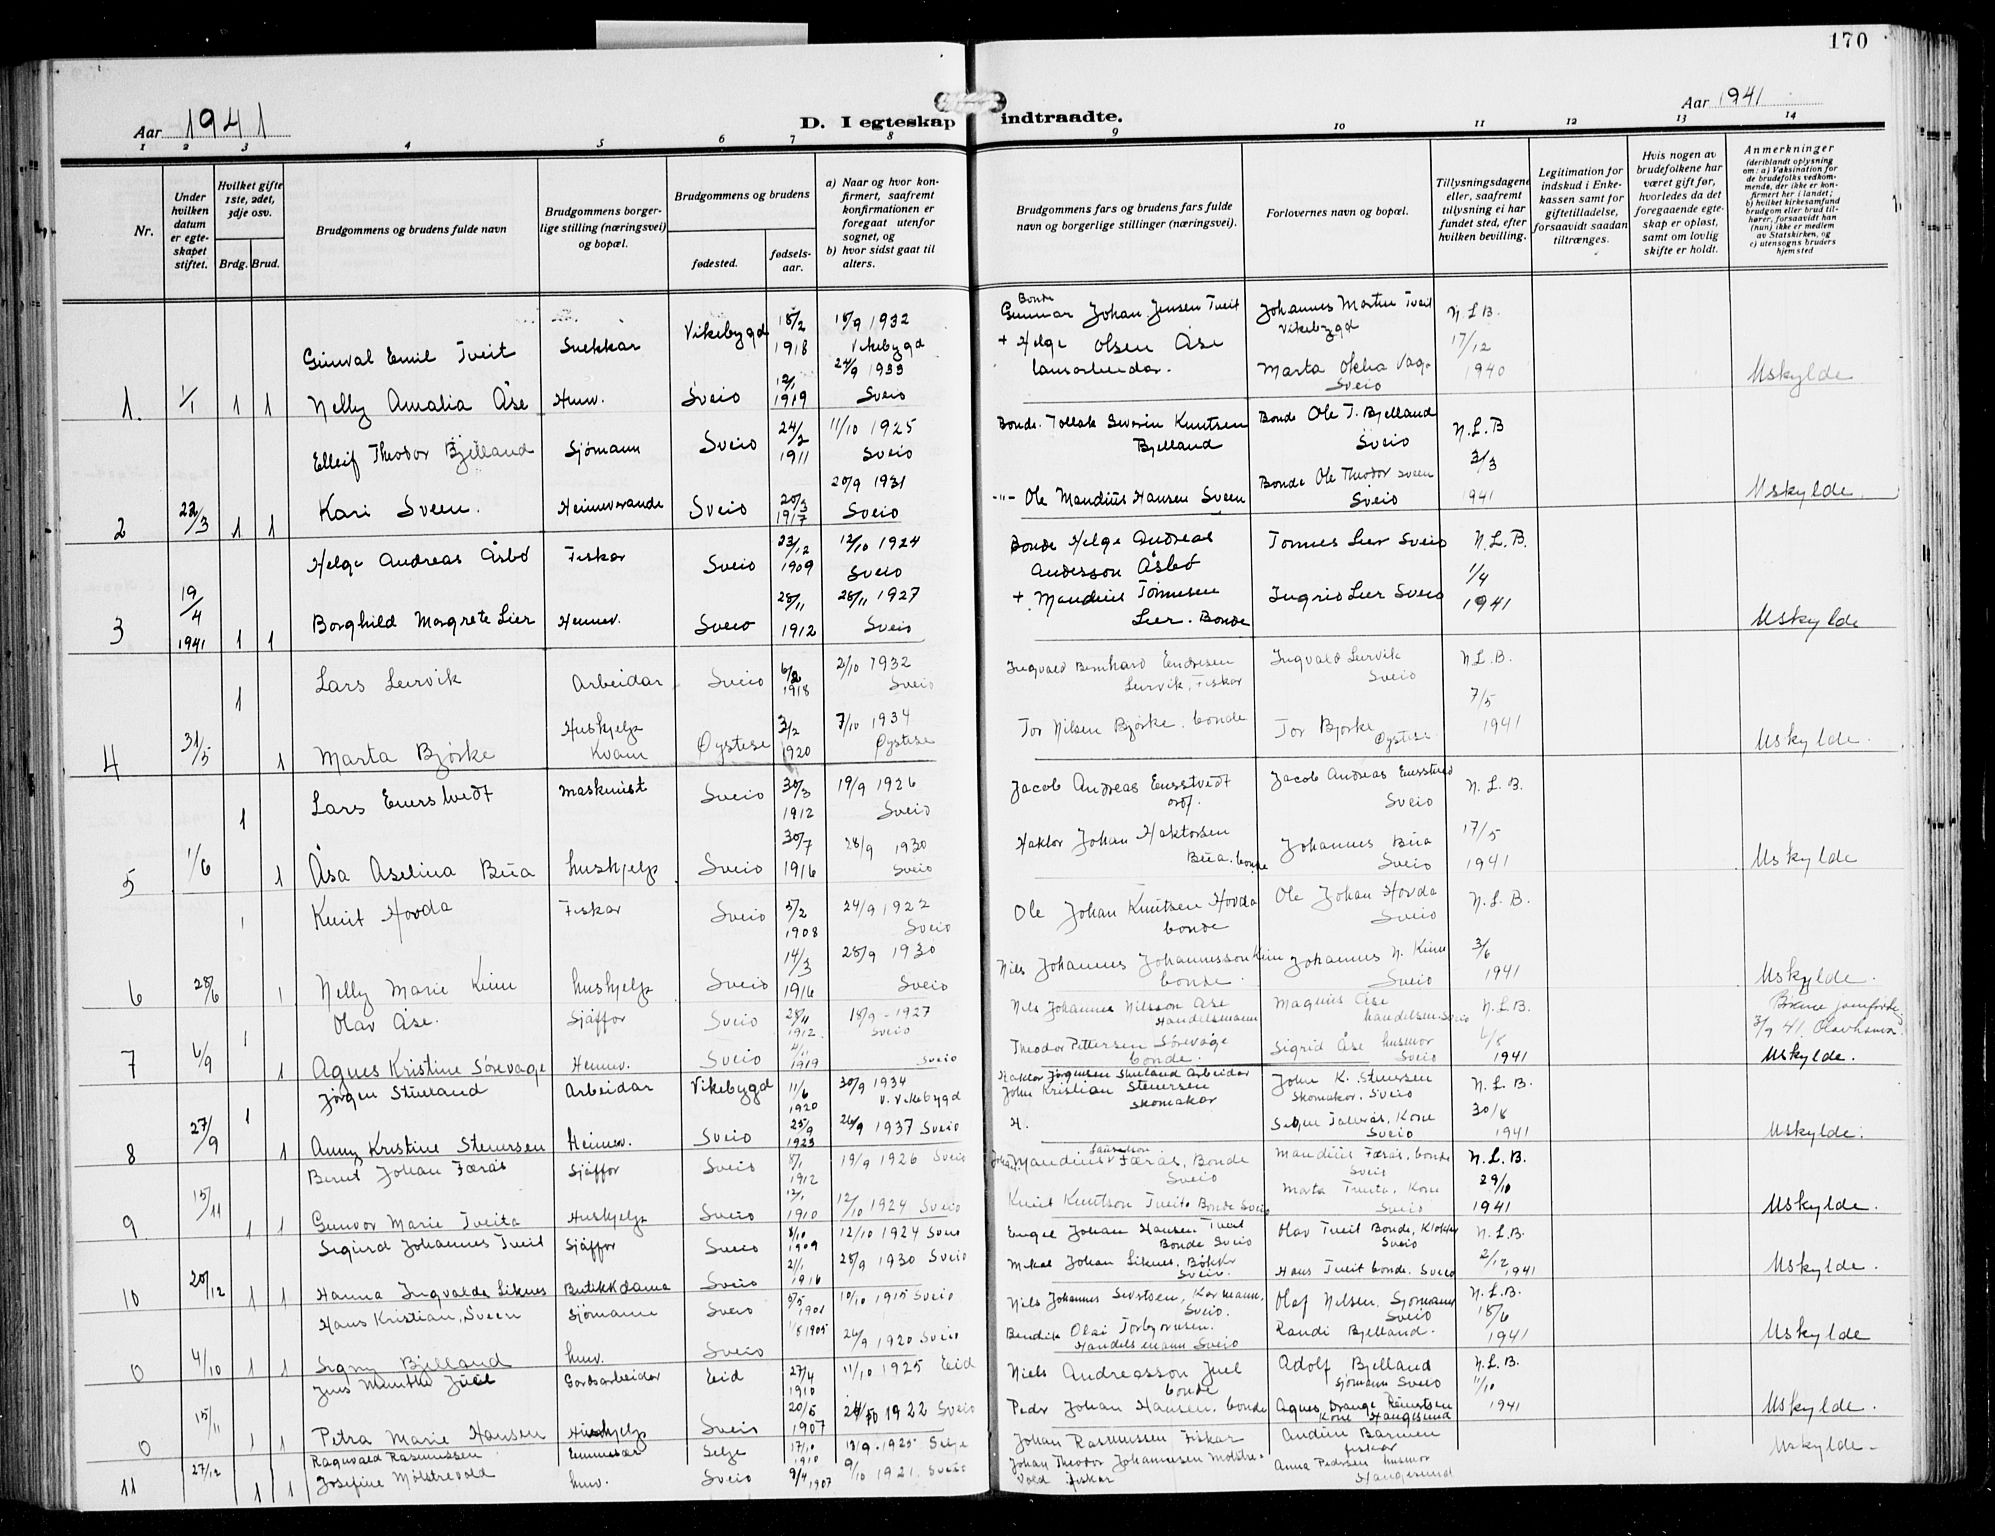 170
Aar 1941
D. I egteskap indtraadte.
Aar 1941
1 2 3 4 5 6 7 8 9 10 11 12 13 14
Nr.
Under hvilken datum er egteskapet stiftet.
Hvilket gifte 1ste, 2det, 3dje osv.
Brdg. Brud.
Brudgommens og brudens fulde navn
Brudgommens borgerlige stilling (næringsvei) og bopæl.
Brudgommens og brudens
fødested.
fødselsaar.
a) Naar og hvor konfirmert, saafremt konfirmationen er foregaat utenfor sognet, og
b) hvor sidst gaat til alters.
Brudgommens fars og brudens fars fulde navn og borgerlige stillinger (næringsvei).
Forlovernes navn og bopæl.
Tillysningsdagene eller, saafremt tillysning ei har fundet sted, efter hvilken bevilling.
Legitimation for indskud i Enkekassen samt for giftetilladelse, forsaavidt saadan tiltrænges.
Hvis nogen av brudefolkene har været gift før, hvorledes da det foregaaende egteskap er opløst, samt om lovlig skifte er holdt.
Anmerkninger
(deriblandt oplysning om: a) Vaksination for de brudefolks vedkommende, der ikke er konfirmert her i landet; b) hvilket kirkesamfund brudgom eller brud tilhører, forsaavidt han (hun) ikke er medlem av Statskirken, og c) utensogns bruders hjemsted
Gunval Emil Tveit Snekkar Vikebygd 18/2 1918 18/9 1932 Vikebygd Bonde Gunnar Johan Jensen Tveit Johannes Martin Tveit Vikebygd N.L.B.
1. 1/1 1 1 Nelly Amalia Åse Heimv. Sveio 12/1 1919 24/9 1933 Sveio + Helge Olsen Åse Sveio 17/12 1940 Uskylde
Elleif Theodor Bjelland Sjömann Sveio 24/2 1911 11/10 1925 Sveio Bonde Tollak Severin Knutsen Bjelland Bonde Ole T. Bjelland Sveio N.L.B
2 22/3 1 1 Kari Sveen. Heimeverande Sveio 20/3 1917 20/9 1931 Sveio -"- Ole Mandius Hansen Sveen Bonde Ole Theodor Sveen Sveio 3/3 1941 Uskylde.
Helge Andreas Åsbö Fiskar Sveio 23/12 1909 12/10 1924 Sveio Bonde Helge Andreas Andersson Åsbö Tønnes Lier Sveio N.L.B.
3 19/4 1941 1 1 Borghild Margrete Lier Heimev. Sveio 28/11 1912 28/11 1927 Sveio + Mandius Tönnesen Lier. Bonde Ingrid Lier Sveio 1/4 1941 Uskylde
1 Lars Leirvik Arbeidar Sveio 6/2 1918 2/10 1932 Sveio Ingvald Bernhard Endresen Leirvik, Fiskar Ingvald Leirvik Sveio N.L.B.
4 31/5 1 Marta Bjørke Huskjelp Kvam Øystese 3/2 1920 7/10 1934 Øystese Tor Nilsen Bjørke. bonde Tor Bjørke Øystese 7/5 1941 Uskylde.
1 Lars Emerstvedt Maskinist Sveio 30/3 1912 19/9 1926 Sveio Jacob Andreas Emerstvedt Jacob Andreas Emerstvedt Sveio N.L.B.
5 1/6 1 Åsa Aselina Bua huskjelp Sveio 30/7 1916 28/9 1930 Sveio Haktor Johan Haktorsen Bua. bonde Johannes Bua Sveio 17/5 1941 Uskylde
1 Knut Hovda Fiskar Sveio 5/2 1908 24/9 1922 Sveio Ole Johan Knutsen Hovda bonde Ole Johan Hovda Sveio N.L.B.
6 28/6 1 Nelly Marie Kinn huskjelp Sveio 14/3 1916 28/9 1930 Sveio Nils Johannes Johannesson Kinn bonde Johannes N. Kinn Sveio 3/6 1941 Uskylde.
1 Olav Åse. Sjåffør Sveio 28/11 1912 18/9 - 1927 Sveio Nils Johannes Nilsson Åse Handelsmann Magnus Åse handelsm. Sveio N.L.B. 3/9 41
7 6/9 1 Agnes Kristine Sörevåge Heimev. Sveio 1919 Sveio Theodor Pettersen Sörevåge bonde. Sigrid Åse husmor Sveio 1941 Uskylde.
1 Jörgen Stueland Arbeidar Vikebygd 11/6 1920 30/9 1934 Vikebygd Haktor Jørgensen Stueland Arbeidar John K. Stenersen Skomakar. Sveio N.L.B.
8 27/9 1 Anny Kristine Stenersen Heimev. Sveio 25/9 1923 26/9 1937 Sveio John Kristian Stenersen Skomakar Kone Sveio 30/8 1941 Uskylde.
Bernt Johan Færås Sjåffør Sveio 8/1 1912 19/9 1926 Sveio Mandius Færås, Bonde Sveio Mandius Færås, bonde Sveio N.L.B.
9 15/11 1 1 Gunvor Marie Tveita Huskjelp Sveio 12/1 1910 12/10 1924 Sveio Knut Knutson Tveita Bonde Sveio Marta Tveita, Kone Sveio 29/10 1941 Uskylde.
Sigurd Johannes Tveit Sjåffør Sveio 8/10 1909 12/10 1924 Sveio Engel Johan Hansen Tveit Bonde Sveio Olav Tveit Bonde, Klokkar Sveio N.L.B.
10 20/12 1 1 Hanna Ingvalda Liknes Butikkdama Sveio 21/1 1916 28/9 1930 Sveio Mikal Johan Liknes, Bøkker Sveio. Hans Tveit bonde. Sveio 2/12 1941 Uskylde.
Hans Kristian Sveen Sjömann Sveio 5/5 1901 10/10 1915 Sveio Nils Johannes Sivertsen, Kormann, Sveio. Olaf Nelsen, Sjömann Sveio N.L.B.
0 4/10 1 1 Signy Bjelland hmv. Sveio 1905 26/9 1920 Sveio Bendik Olai Torbjørnsen. Handelsmann Sveio Randi Bjelland. 18/6 1941 Uskylde
Jens Munthe Juel Gardsarbeidar Eid 27/4 1910 11/10 1925 Eid Niels Andreasson Juel bonde Adolf Bjelland Sjömann Sveio N.L.B.
0 15/11 1 1 Petra Marie Hansen Huskjelp Sveio 20/5 1907 1922 Sveio Peder Johan Hansen. bonde Agnes Kone Haugesund 11/10 1941 Uskylde.
Ragnvald Rasmussen Selje 17/10 1910 13/9 - 1925 Selje Johan Rasmussen Fiskar Fiskar Uskylde -
11 27/12 1 1 Josefine Mölstrevold hmv. Sveio 9/4 1907 9/10 1921. Sveio Johan Theodor Johannesen Molstrevold fiskar Anna Pedersen husmor Haugesund